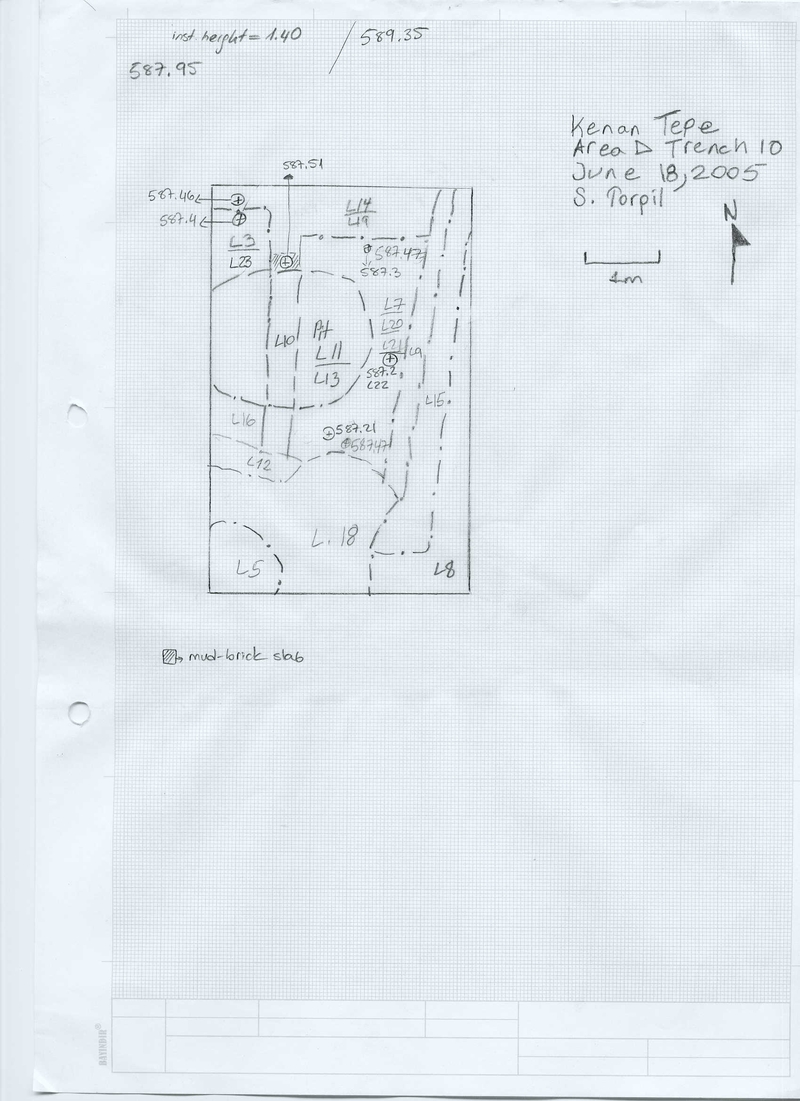 inst. height = 1.40 / 589.35
587.95
Kenan Tepe
Area D Trench 10
June 18, 2005
S. Torpil
N
1m
587.51
587.46
587.4
L14
L19
L3
L23
587.47
587.3
L7
L20
L21
L9
587.2
L22
L10
Pit
L11
L13
L15
L16
587.21
587.47
L12
L. 18
L5
L8
mud-brick slab
BAYINDIR®